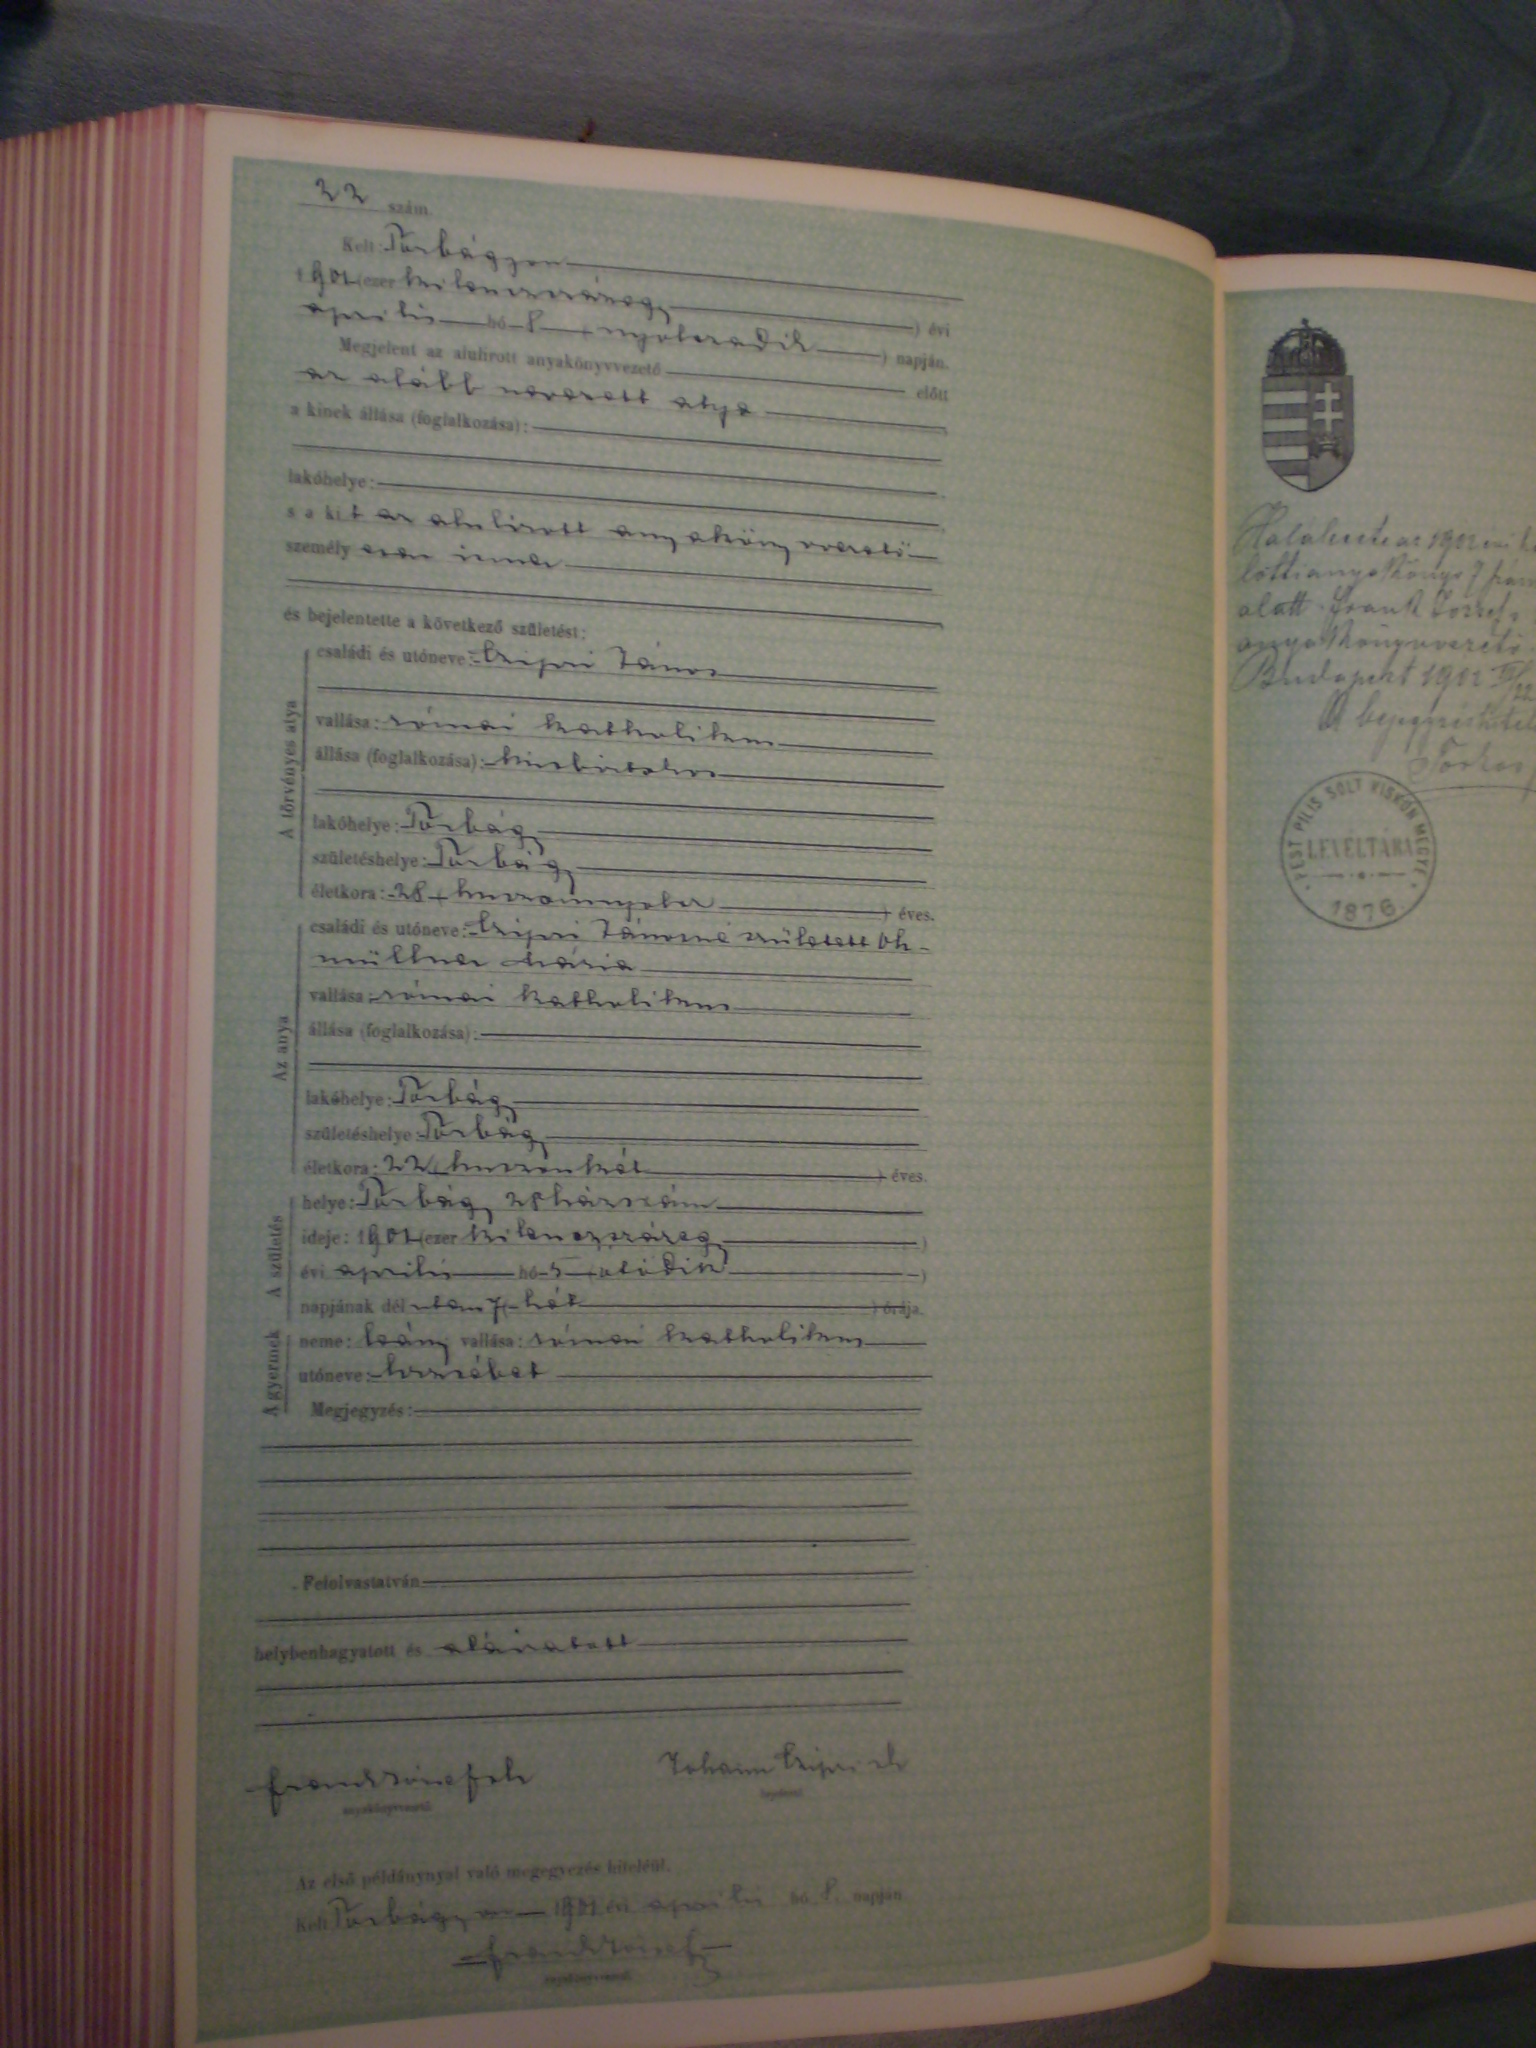 22 szám
Kelt: Torbágyon
1901 (ezer kilenczszázegy ) évi
április hó 8 ( nyolczadik ) napján.
Megjelent az alulirott anyakönyvvezető előtt
az alább nevezett atya
a kinek állása (foglalkozása):
lakóhelye:
s a kit az alulirott anyakönyvvezető
személyesen ismer
és bejelentette a következő születést:
A törvényes atya
családi és utóneve: Czipri János
vallása: római katholikus
állása (foglalkozása): kisbirtokos
lakóhelye: Torbágy
születéshelye: Torbágy
életkora: 28 ( huszonnyolcz ) éves.
Az anya
családi és utóneve: Czipri Jánosné született Oh-
müllner Mária
vallása: római katholikus
állása (foglalkozása):
lakóhelye: Torbágy
születéshelye: Torbágy
életkora: 22 ( huszonkét ) éves.
A születés
helye: Torbágy 28 házszám
ideje: 1901 (ezer kilenczszázegy )
évi április hó 5 ( ötödik )
napjának dél után 7 ( hét ) órája.
A gyermek
neme: leány vallása: római katholikus
utóneve: Erzsébet
Megjegyzés:
Felolvastatván
helybenhagyatott és aláiratott
anyakönyvvezető
Johann Czipri
bejelentő
Az első példánynyal való megegyezés hiteléül.
Kelt Torbágyon 1901 évi április hó 8. napján
Frank József
anyakönyvvezető
Halálesete az 1902 évi ha
lotti anyakönyv 7 szám
alatt. Frank József
anyakönyvvezető
Budapest 1902
A bejegyzés hitelé
PEST PILIS SOLT KISKUN MEGYE
LEVÉLTÁRA
1876